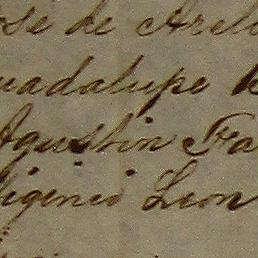 ose de Arel
uadalupe
Agustin Fa
igenio Leon